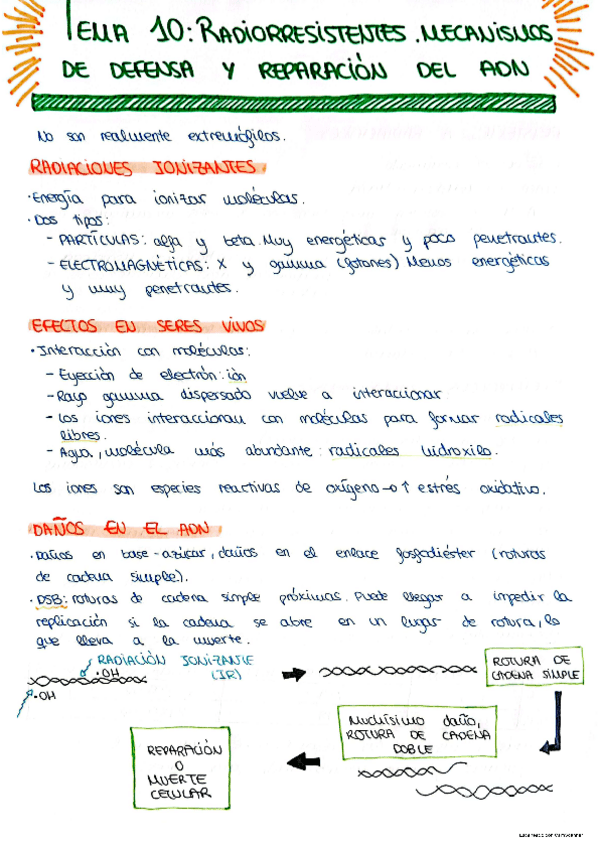 TEMA 10: RADIORRESISTENTES. MECANISMOS
DE DEFENSA Y REPARACIÓN DEL ADN
No son realmente extremófilos.
RADIACIONES IONIZANTES
· Energía para ionizar moléculas.
· Dos tipos:
- PARTÍCULAS: alfa y beta. Muy energéticas y poco penetrantes.
- ELECTROMAGNÉTICAS: X y gamma (fotones) Menos energéticas
y muy penetrantes.
EFECTOS EN SERES VIVOS
· Interacción con moléculas:
- Eyección de electrón: ión
- Rayo gamma dispersado vuelve a interaccionar
- Los iones interaccionan con moléculas para formar radicales
libres.
- Agua, molécula más abundante: radicales hidroxilo.
Los iones son especies reactivas de oxígeno → ↑ estrés oxidativo.
DAÑOS EN EL ADN
· Daños en base-azúcar, daños en el enlace fosfodiéster (roturas
de cadena simple).
· DSB: roturas de cadena simple próximas. Puede llegar a impedir la
replicación si la cadena se abre en un lugar de rotura, lo
que lleva a la muerte.
RADIACIÓN IONIZANTE
(IR)
·OH
·OH
ROTURA DE
CADENA SIMPLE
MUCHÍSIMO DAÑO,
ROTURA DE CADENA
DOBLE
REPARACIÓN
O
MUERTE
CELULAR